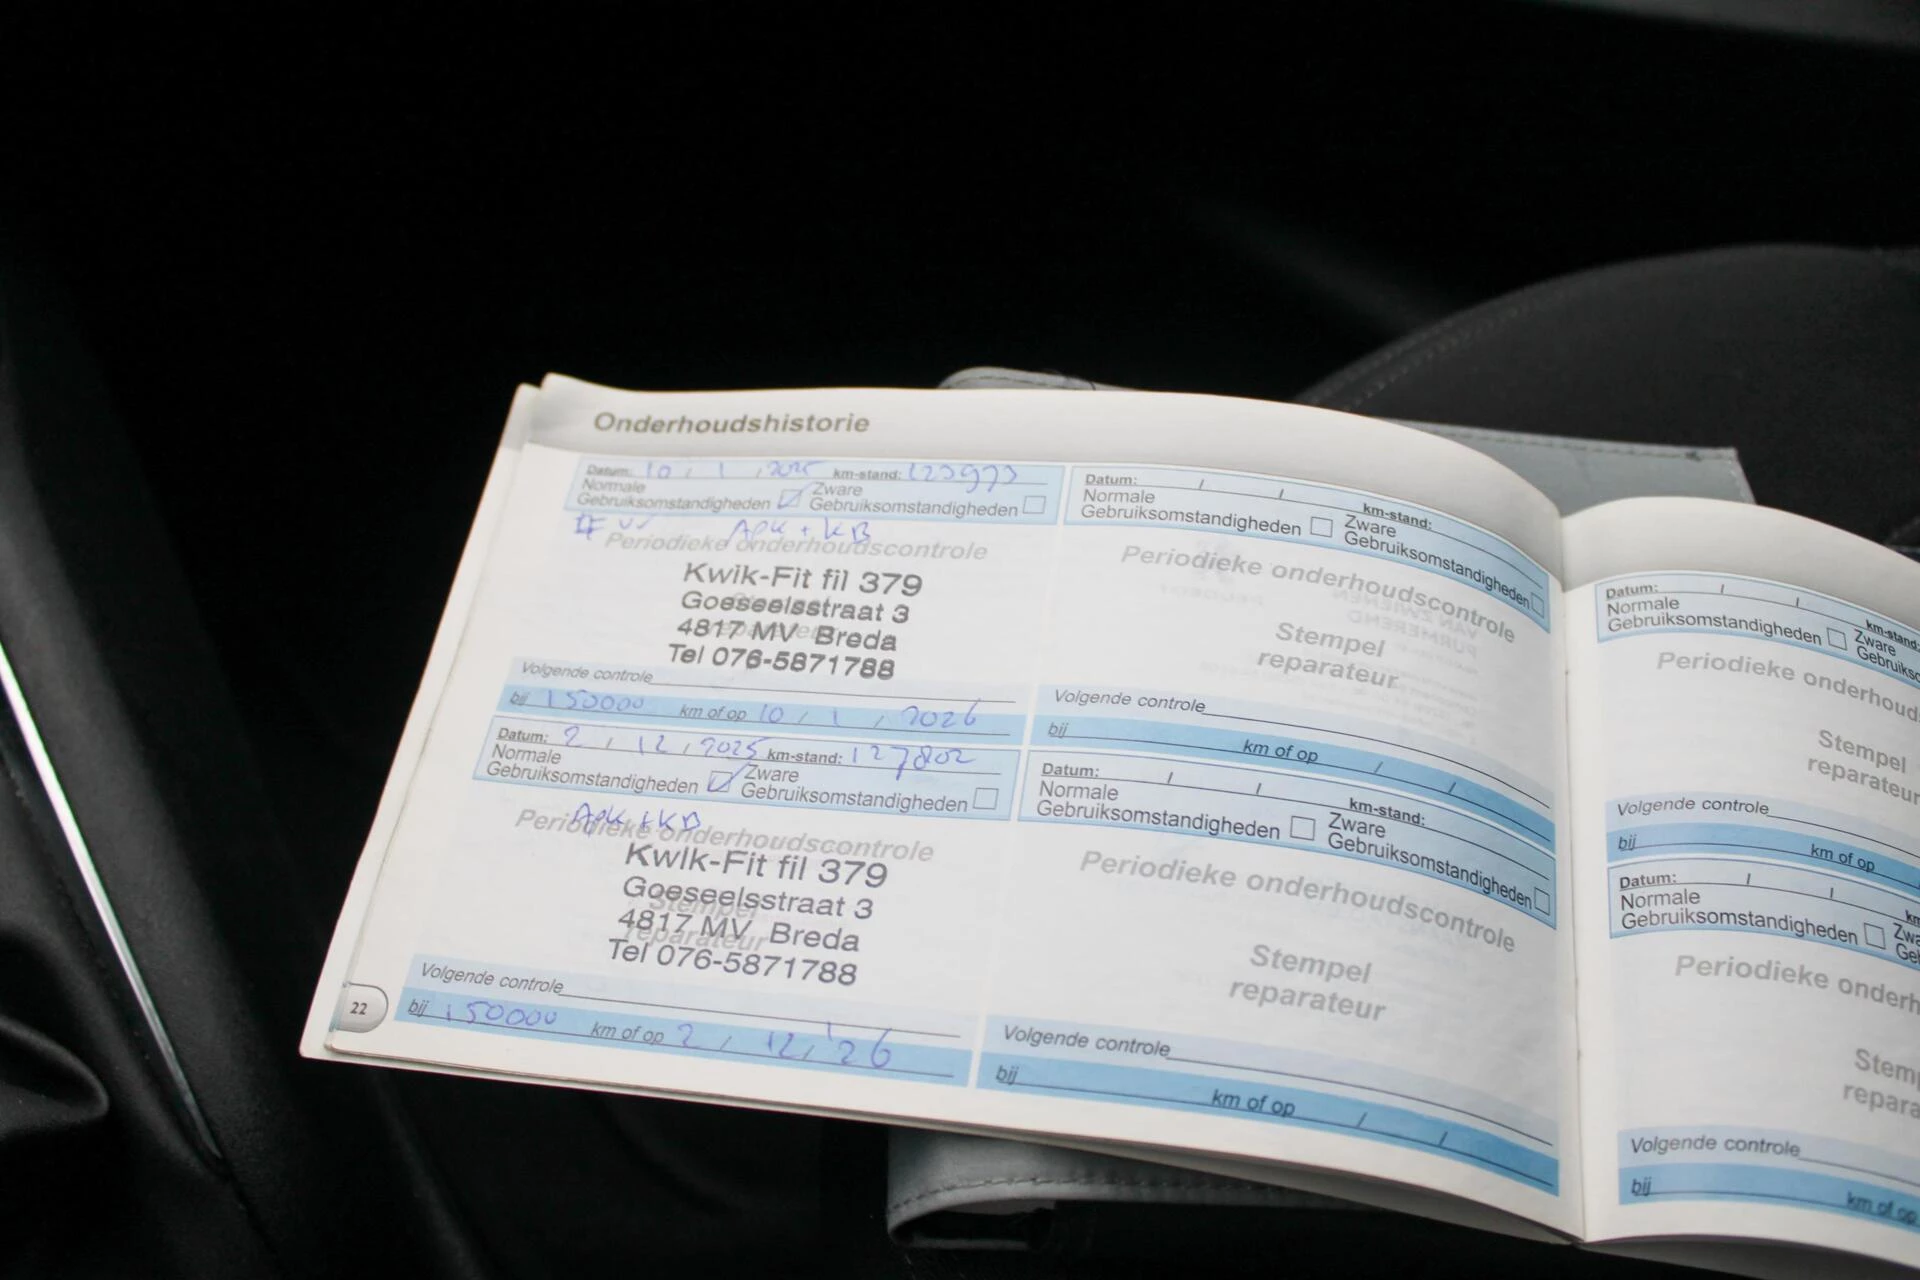 Onderhoudshistorie
Datum: 10 / 1 / 2025 km-stand: 123973
Normale Gebruiksomstandigheden ☑ Zware Gebruiksomstandigheden ☐
Apk + KB
Periodieke onderhoudscontrole
Kwik-Fit fil 379
Goeseelsstraat 3
4817 MV Breda
Tel 076-5871788
Volgende controle
bij 150000 km of op 10 / 1 / 2026
Datum: 2 / 12 / 2025 km-stand: 127802
Normale Gebruiksomstandigheden ☑ Zware Gebruiksomstandigheden ☐
Apk + KB
Periodieke onderhoudscontrole
Kwik-Fit fil 379
Goeseelsstraat 3
Stempel
4817 MV Breda
reparateur
Tel 076-5871788
Volgende controle
bij 150000 km of op 2 / 12 / '26
22
Datum: / / km-stand:
Normale Gebruiksomstandigheden ☐ Zware Gebruiksomstandigheden ☐
Periodieke onderhoudscontrole
Stempel
reparateur
Volgende controle
bij km of op / /
Datum: / / km-stand:
Normale Gebruiksomstandigheden ☐ Zware Gebruiksomstandigheden ☐
Periodieke onderhoudscontrole
Stempel
reparateur
Volgende controle
bij km of op / /
Datum: / / km-stand:
Normale Gebruiksomstandigheden ☐ Zware
Periodieke
Stempel
reparateur
Volgende controle
bij km of op
Datum: / /
Normale Gebruiksomstandigheden ☐
Periodieke
Volgende controle
bij km of op